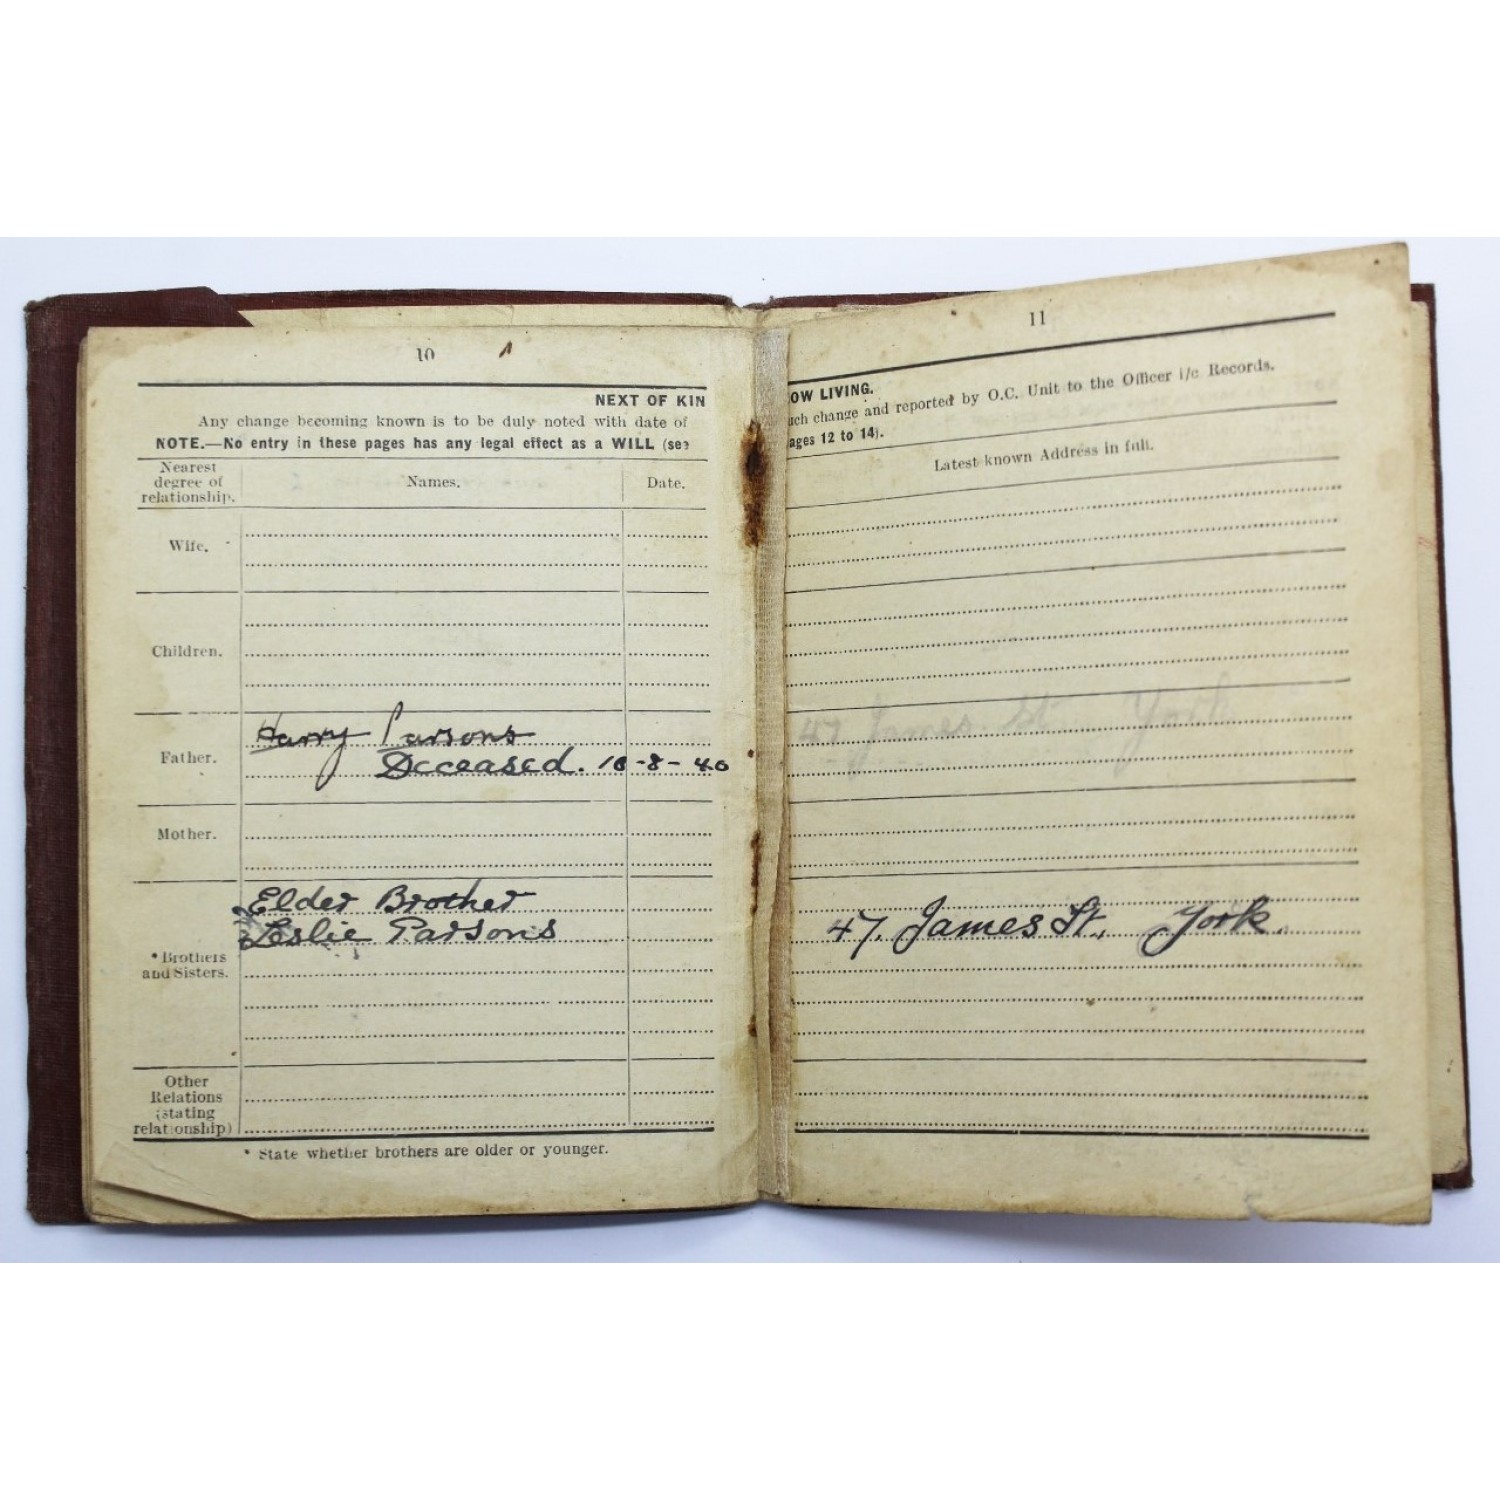 10
NEXT OF KIN
Any change becoming known is to be duly noted with date of
NOTE.—No entry in these pages has any legal effect as a WILL (see
Nearest
degree of
relationship.
Names.
Date.
Wife.
Children.
Father.
Harry Parsons
Deceased. 10-8-40
Mother.
* Brothers
and Sisters.
Elder Brother
Leslie Parsons
Other
Relations
(stating
relationship)
* State whether brothers are older or younger.
11
OW LIVING.
uch change and reported by O.C. Unit to the Officer i/c Records.
ages 12 to 14).
Latest known Address in full.
47 James St York
47. James St. York.